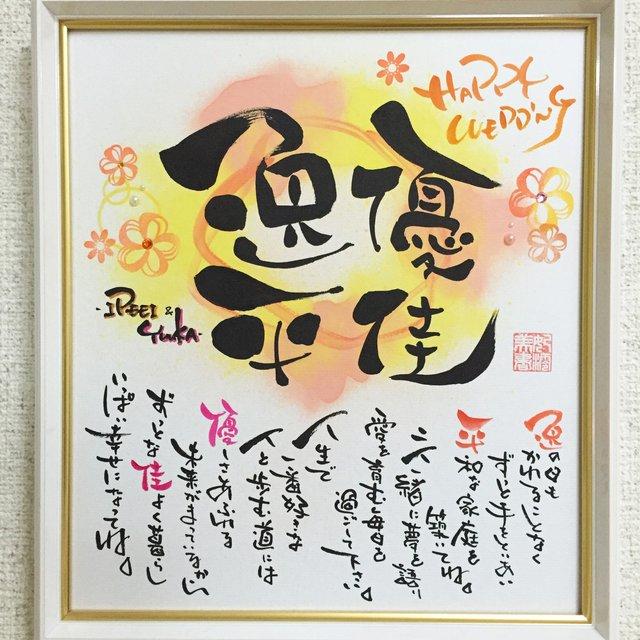 HAPPY
WEDDING
優佳
逸平
-IPPEI &
YUKA-
逸の日も
かわることなく
ずっと手をとりあい
平和な家庭を
築いてね。
二人一緒に夢を語り
愛を育む毎日を
過ごして下さい。
人生で
一番好きな
人と歩む道には
優しさあふれる
未来がまっているから
ずっとな佳よく暮らし
いっぱい幸せになってね。